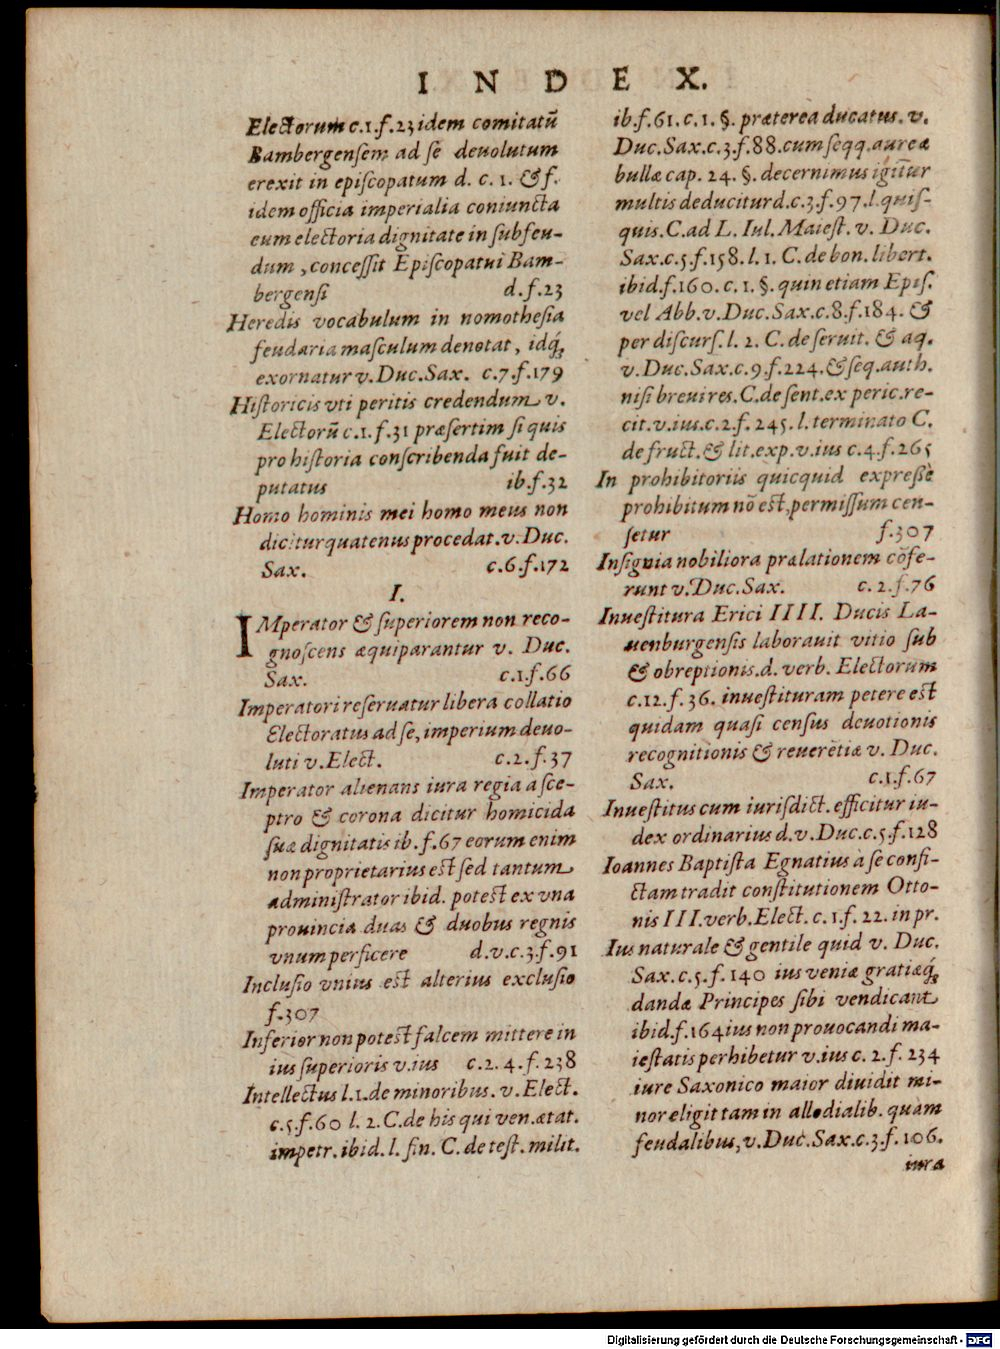 I N D E X.
Electorum c.1.f.23 idem comitatū
Bambergenſem ad ſe deuolutum
erexit in epiſcopatum d. c. 1. & f.
idem officia imperialia coniuncta
eum electoria dignitate in ſubfeu-
dum, conceſſit Epiſcopatui Bam-
bergenſi d.f.23
Heredis vocabulum in nomotheſia
feudaria maſculum denotat, idq́;
exornatur v. Duc. Sax. c.7.f.179
Hiſtoricis vti peritis credendum v.
Electorū c.1.f.31 præſertim ſi quis
pro hiſtoria conſcribenda fuit de-
putatus ib.f.32
Homo hominis mei homo meus non
dicitur quatenus procedat. v. Duc.
Sax. c.6.f.172
I.
IMperator & ſuperiorem non reco-
gnoſcens æquiparantur v. Duc.
Sax. c.1.f.66
Imperatori reſeruatur libera collatio
Electoratus ad ſe, imperium deuo-
luti v. Elect. c.2.f.37
Imperator alienans iura regia à ſce-
ptro & corona dicitur homicida
ſuæ dignitatis ib.f.67 eorum enim
non proprietarius eſt ſed tantum
adminiſtrator ibid. poteſt ex vna
prouincia duas & duobus regnis
vnum perficere d.v.c.3.f.91
Incluſio vnius eſt alterius excluſio
f.307
Inferior non poteſt falcem mittere in
ius ſuperioris v.ius c.2.4.f.238
Intellectus l.1. de minoribus. v. Elect.
c.5.f.60 l. 2. C. de his qui ven. ætat.
impetr. ibid. l. fin. C. de teſt. milit.
ib.f.61.c.1.§. præterea ducatus. v.
Duc. Sax.c.3.f.88. cum ſeqq. aureæ
bullæ cap. 24. §. decernimus igitur
multis deducitur d.c.3.f.97.l. quiſ-
quis. C. ad L. Iul. Maieſt. v. Duc.
Sax.c.5.f.158.l.1. C. de bon. libert.
ibid.f.160. c.1.§. quin etiam Epiſ.
vel Abb. v. Duc. Sax. c.8.f.184. &
per diſcurſ. l. 2. C. de ſeruit. & aq.
v. Duc. Sax. c.9.f.224. & ſeq. auth.
niſi breuires. C. de ſent. ex peric. re-
cit. v. ius. c.2.f. 245. l. terminato C.
de fruct. & lit. exp. v. ius c.4.f.265
In prohibitoriis quicquid expreſsè
prohibitum nō eſt, permiſſum cen-
ſetur f.307
Inſignia nobiliora prælationem cōfe-
runt v. Duc. Sax. c. 2.f.76
Inueſtitura Erici IIII. Ducis La-
uenburgenſis laborauit vitio ſub
& obreptionis. d. verb. Electorum
c.12.f.36. inueſtituram petere eſt
quidam quaſi cenſus deuotionis
recognitionis & reuerētiæ v. Duc.
Sax. c.1.f.67
Inueſtitus cum iurisdict. efficitur iu-
dex ordinarius d.v. Duc.c.5.f.128
Ioannes Baptiſta Egnatius à ſe confi-
ctam tradit conſtitutionem Otto-
nis III. verb. Elect. c.1.f. 22. in pr.
Ius naturale & gentile quid v. Duc.
Sax. c.5.f.140 ius veniæ gratiæq́;
dandæ Principes ſibi vendicant
ibid.f.164 ius non prouocandi ma-
ieſtatis perhibetur v. ius c. 2.f. 234
iure Saxonico maior diuidit mi-
nor eligit tam in allodialib. quàm
feudalibus, v. Duc. Sax.c.3.f.106.
iura
Digitalisierung gefördert durch die Deutsche Forschungsgemeinschaft - DFG